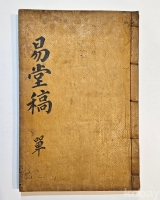 易堂稿
單